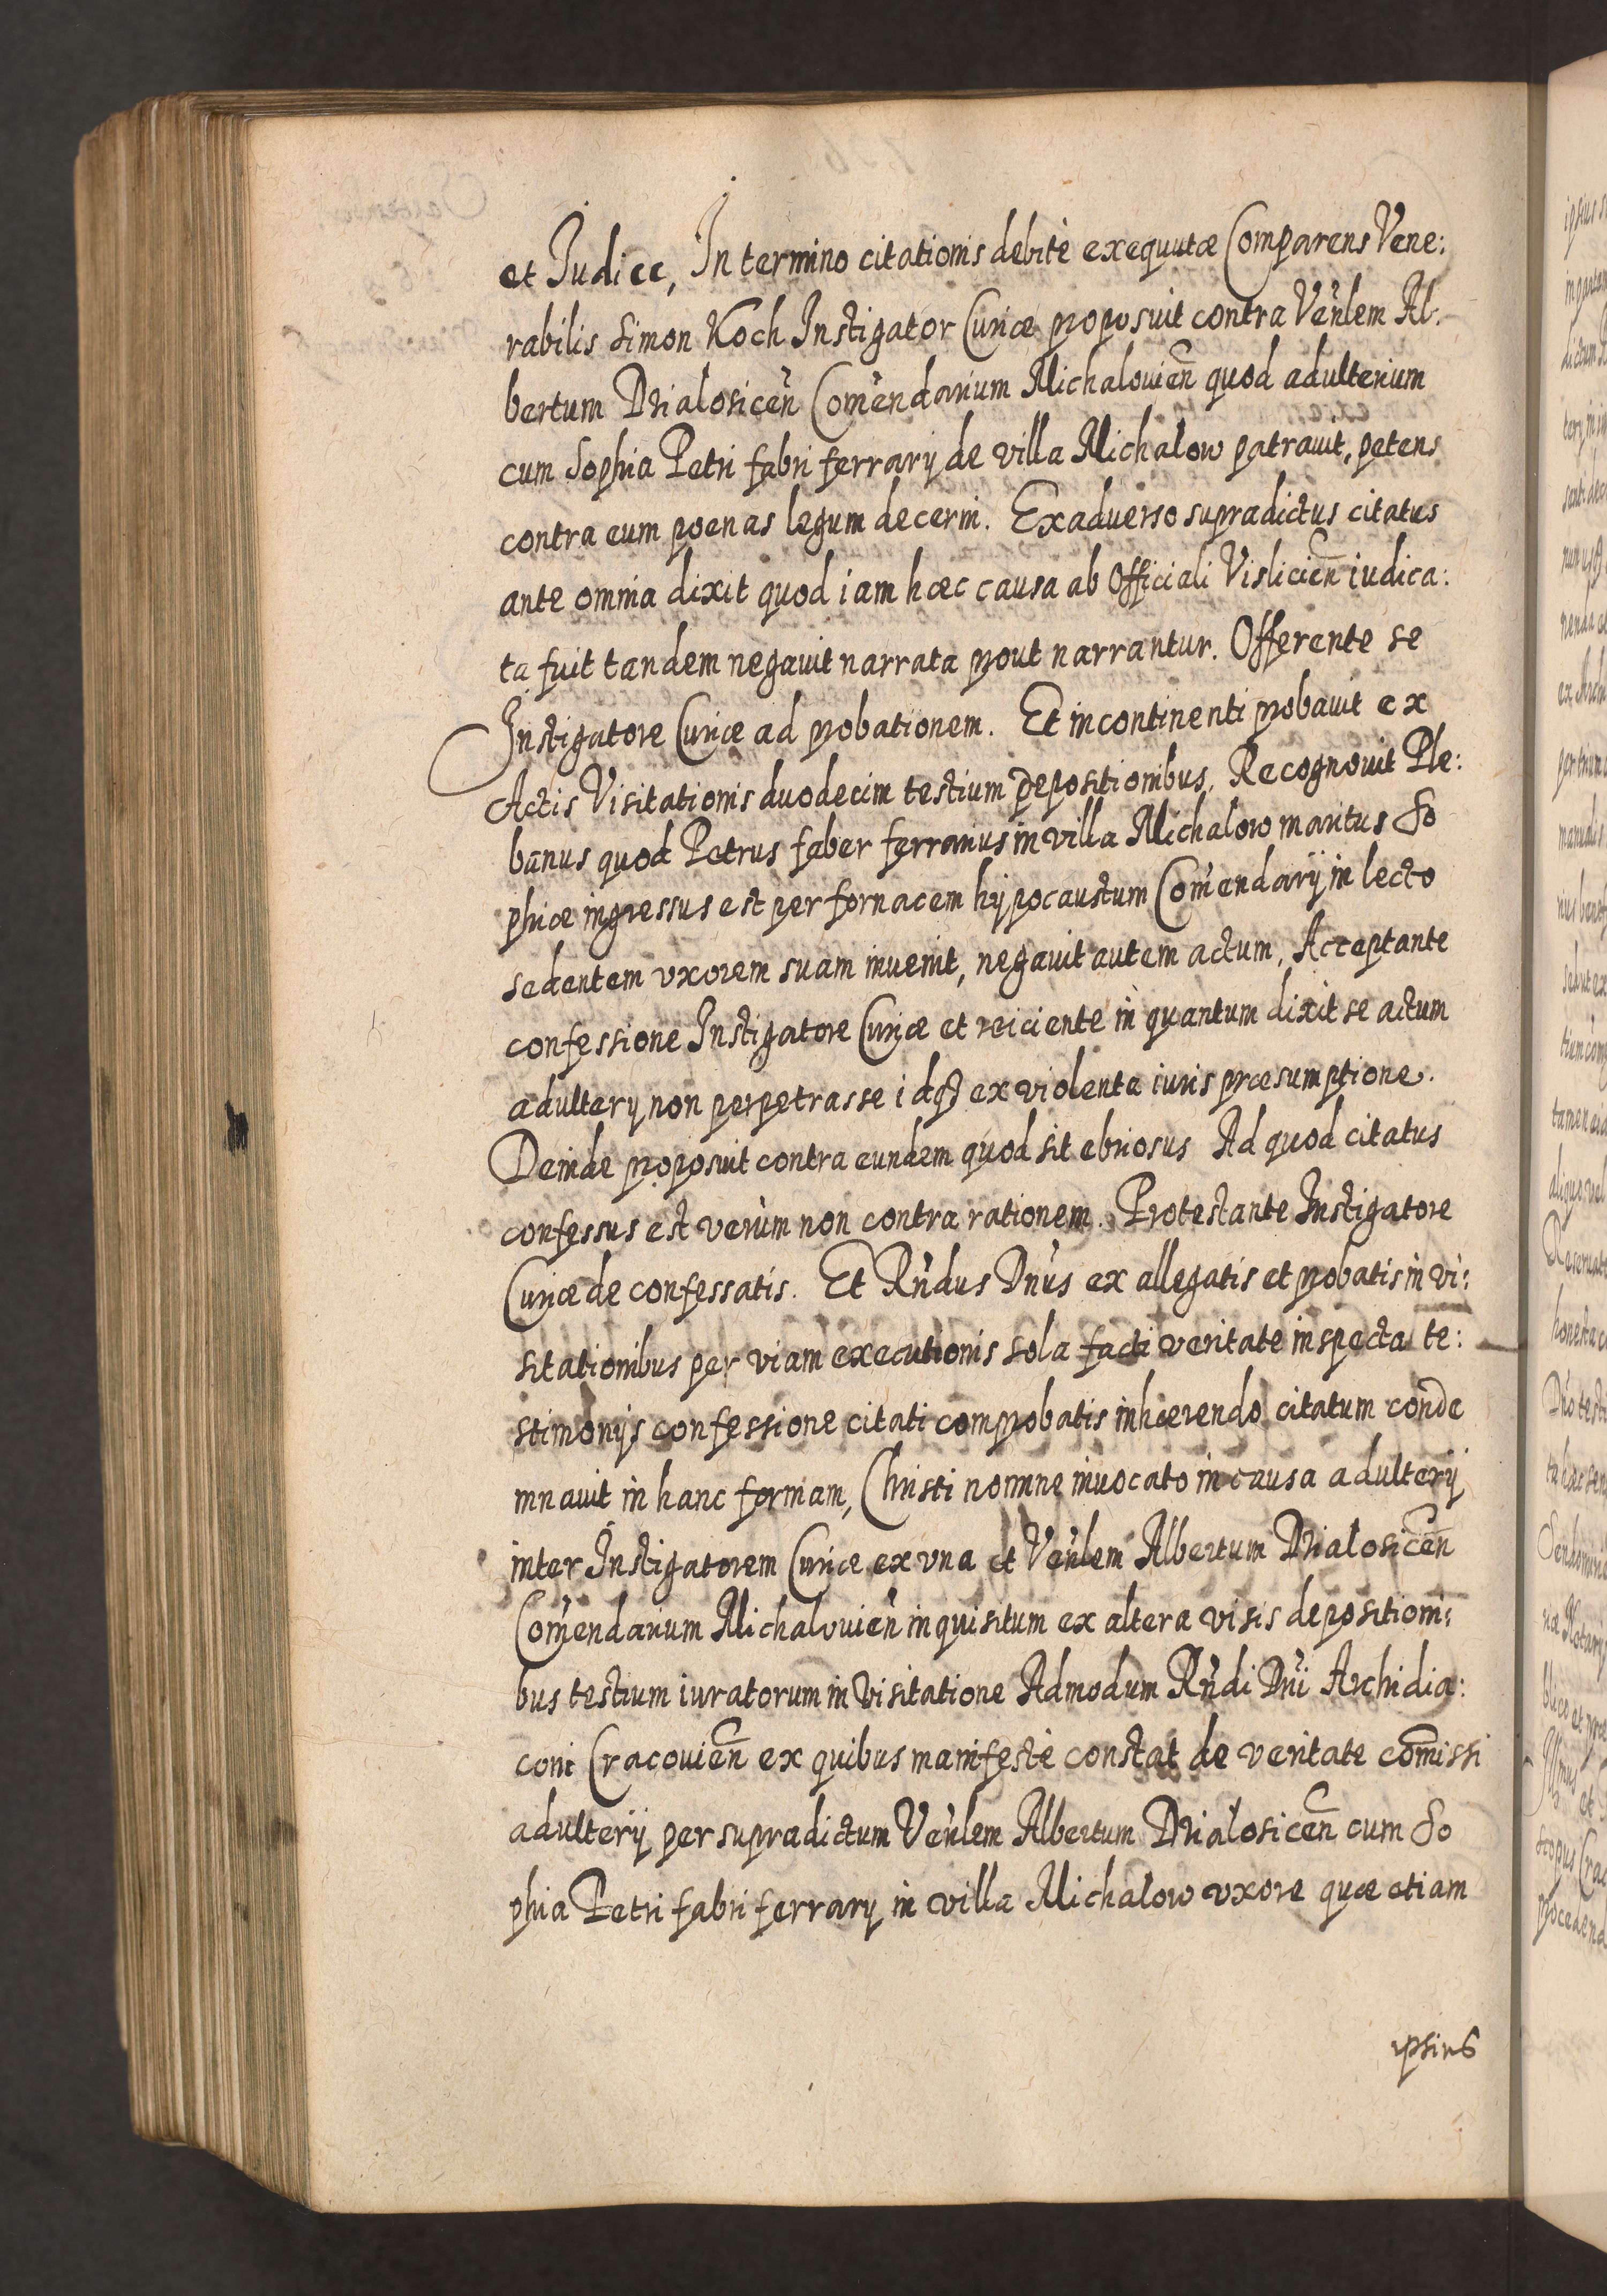 et Judice, In termino citationis debitè exequutæ Comparens Vene:
rabilis Simon Koch Instigator Curiæ proposuit contra Veñlem Al:
bertum Dzialosiceñ Com̃endarium Michalouieñ quod adulterium
cum Sophia Petri fabri ferrarij de villa Michalow patrauit, petens
contra eum poenas legum decerni. Exaduerso supradictus citatus
ante omnia dixit quod iam hæc causa ab Officiali Vislicieñ iudica:
ta fuit tandem negauit narrata prout narrantur. Offerente se
Instigatore Curiæ ad probationem. Et incontinenti probauit ex
Actis Visitationis duodecim testium depositionibus, Recognouit Ple:
banus quod Petrus faber ferrarius in villa Michalow maritus So
phiæ ingressus est per fornacem hypocaustum Com̃endarij in lecto
sedentem vxorem suam inuenit, negauit autem actum, Acceptante
confessione Instigatore Curiæ et reiciente in quantum dixit se actum
adulterij non perpetrasse idqꝫ ex violenta iuris præsumptione.
Deinde proposuit contra eundem quod sit ebriosus Ad quod citatus
confessus est verùm non contra rationem. Protestante Instigatore
Curiæ de confessatis. Et Rñdus Dñus ex allegatis et probatis in vi:
sitationibus per viam executionis sola facti veritate inspecta te:
stimonijs confessione citati comprobatis inhærendo citatum conde
mnauit in hanc formam, Christi nomine inuocato in causa adulterij
inter Instigatorem Curiæ ex vna et Veñlem Albertum Dzialosiceñ
Com̃endarium Michalouieñ inquisitum ex altera visis depositioni:
bus testium iuratorum in Visitatione Admodum Rñdi Dñi Archidia:
coni Cracouieñ ex quibus manifestè constat de veritate com̃issi
adulterij per supradictum Veñlem Albertum Dzialosiceñ cum So
phia Petri fabri ferrarij in villa Michalow vxore quæ etiam
ipsius